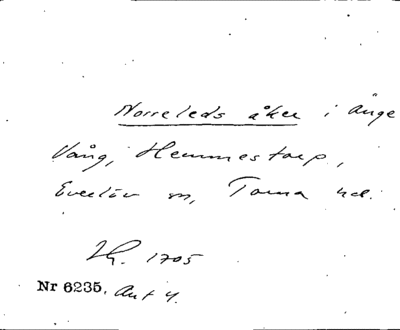 Norreleds åker i Ånge
Vång, Hemmestorp,
Everlöv sn, Torna hd.
Lh. 1705
Nr 6235, Ant 4.